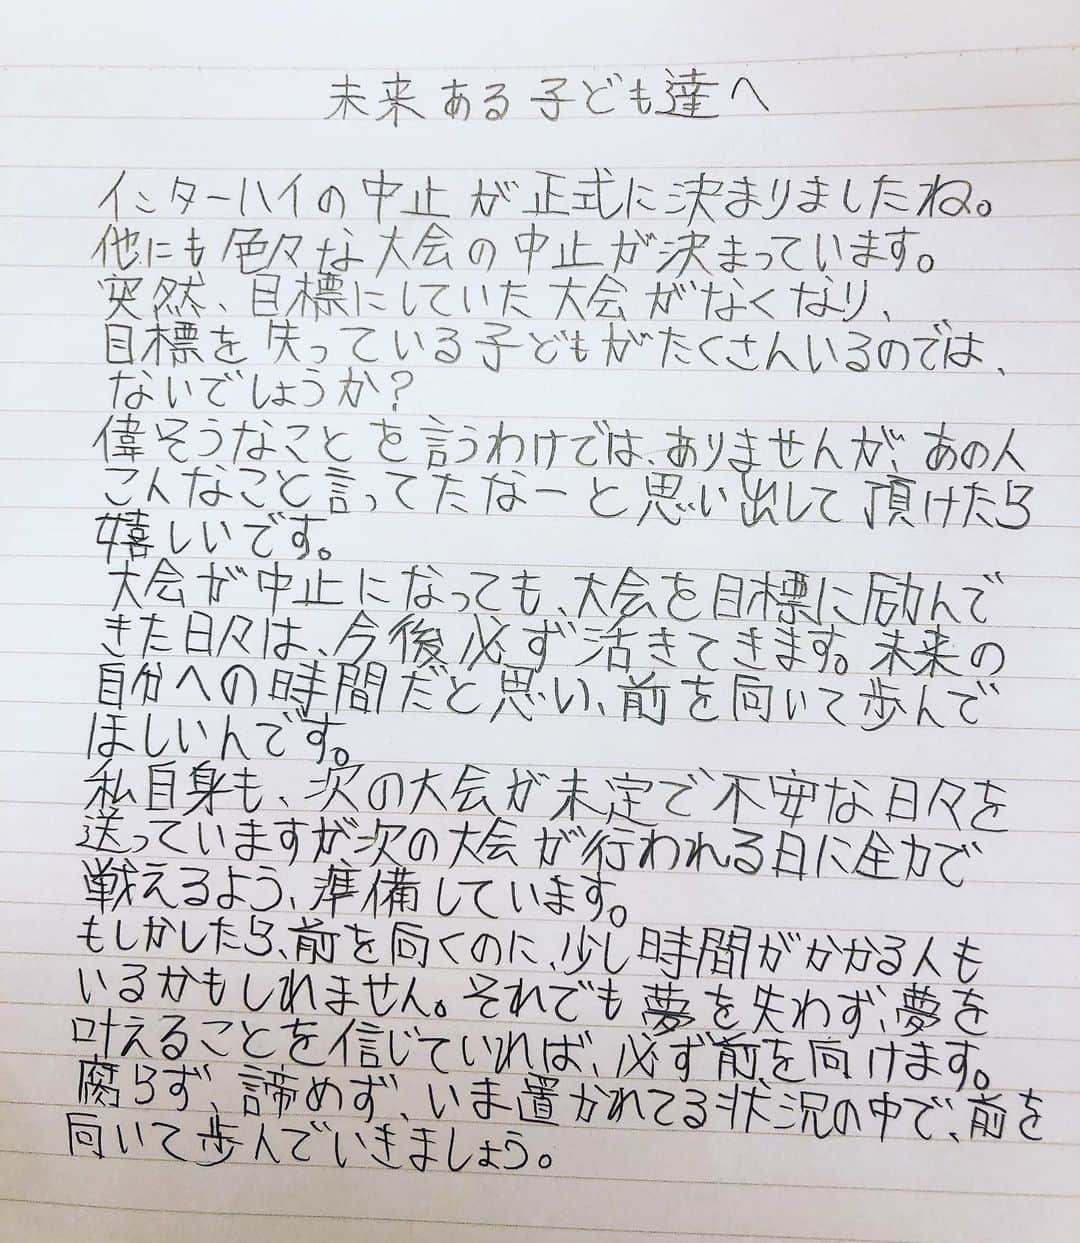 未来ある子ども達へ
インターハイの中止が正式に決まりましたね。
他にも色々な大会の中止が決まっています。
突然、目標にしていた大会がなくなり、
目標を失っている子どもがたくさんいるのでは、
ないでしょうか?
偉そうなことを言うわけでは、ありませんが、あの人
こんなこと言ってたなーと思い出して頂けたら
嬉しいです。
大会が中止になっても、大会を目標に励んで
きた日々は、今後必ず活きてきます。未来の
自分への時間だと思い、前を向いて歩んで
ほしいんです。
私自身も、次の大会が未定で不安な日々を
送っていますが次の大会が行われる日に全力で
戦えるよう、準備しています。
もしかしたら、前を向くのに、少し時間がかかる人も
いるかもしれません。それでも夢を失わず、夢を
叶えることを信じていれば、必ず前を向けます。
腐らず、諦めず、いま置かれてる状況の中で、前を
向いて歩んでいきましょう。